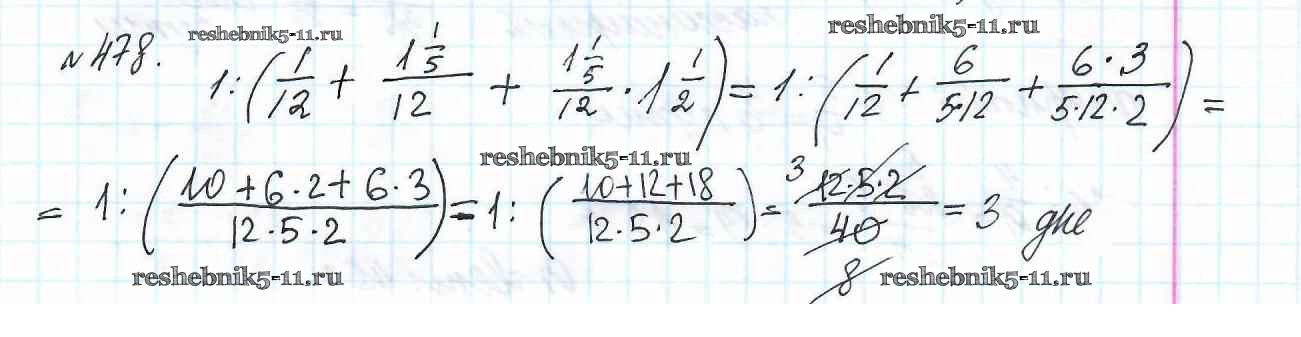 reshebnik5-11.ru reshebnik5-11.ru
№478.
1:(1/12 + 1 1/5/12 + 1 1/5/12 · 1 1/2) = 1:(1/12 + 6/5·12 + 6·3/5·12·2) =
reshebnik5-11.ru
= 1:(10+6·2+6·3/12·5·2) = 1:(10+12+18/12·5·2) = 3 12·5·2/40 8 = 3 дне
reshebnik5-11.ru reshebnik5-11.ru